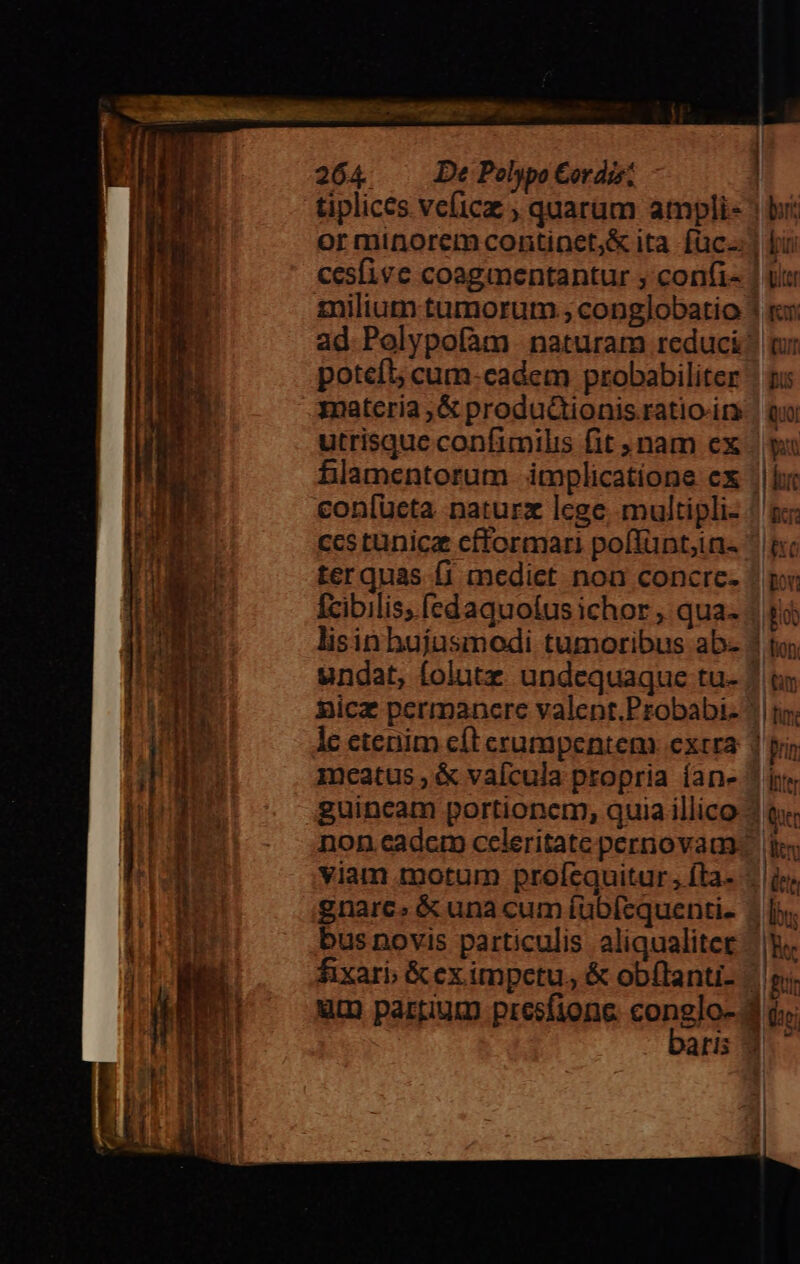 264 De Polypo Cordis.
tiplices veſicæ, quarum ampli-
or minorem continet,& ita ſuc-
cesſive coagmentantur, conſi-
milium tumorum, conglobatio
ad Polypoſam naturam reduci
poteſt, cum eadem probabiliter
materia,& productionis ratio in
utrisque conſimilis ſit, nam ex
filamentorum implicatione ex
conſueta naturæ lege multipli-
ces tunicæ efformari poſſunt,in-
ter quas ſi mediet non concre-
ſcibilis, ſed aquoſus ichor, qua-
lis in hujusmodi tumoribus ab-
undat, ſolutæ undequaque tu-
nicæ permanere valent.Probabi-
le etenim eſt erumpentem extra
meatus, & vaſcula propria ſan-
guineam portionem, quia illico
non eadem celeritate per novam
viam motum proſequitur, ſta-
gnare, & una cum ſubſequenti-
bus novis particulis aliqualiter
fixari, & ex impetu, & obſtanti-
um partium presſione conglo-
batis